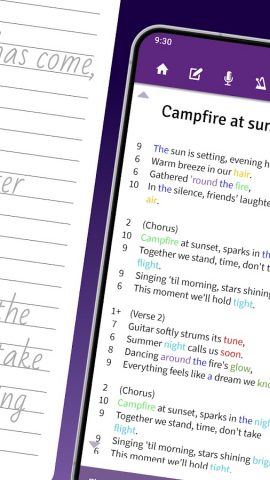 has come,
er
the
take
ng
9:30
Campfire at sun
9 The sun is setting, evening h
6 Warm breeze in our hair.
6 Gathered 'round the fire,
10 In the silence, friends' laughte
air.
2 (Chorus)
10 Campfire at sunset, sparks in the
9 Together we stand, time, don't t
flight.
9 Singing 'til morning, stars shining
6 This moment we'll hold tight.
1+ (Verse 2)
7 Guitar softly strums its tune,
6 Summer night calls us soon.
8 Dancing around the fire's glow,
9 Everything feels like a dream we kno
2 (Chorus)
10 Campfire at sunset, sparks in the nigh
9 Together we stand, time, don't take
flight.
9 Singing 'til morning, stars shining brigh
6 This moment we'll hold tight.